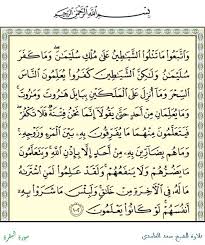 بِسْمِ ٱللَّهِ ٱلرَّحْمَٰنِ ٱلرَّحِيمِ
وَٱتَّبَعُوا۟ مَا تَتْلُوا۟ ٱلشَّيَٰطِينُ عَلَىٰ مُلْكِ سُلَيْمَٰنَ ۖ وَمَا كَفَرَ
سُلَيْمَٰنُ وَلَٰكِنَّ ٱلشَّيَٰطِينَ كَفَرُوا۟ يُعَلِّمُونَ ٱلنَّاسَ
ٱلسِّحْرَ وَمَآ أُنزِلَ عَلَى ٱلْمَلَكَيْنِ بِبَابِلَ هَٰرُوتَ وَمَٰرُوتَ ۚ
وَمَا يُعَلِّمَانِ مِنْ أَحَدٍ حَتَّىٰ يَقُولَآ إِنَّمَا نَحْنُ فِتْنَةٌ فَلَا تَكْفُرْ ۖ
فَيَتَعَلَّمُونَ مِنْهُمَا مَا يُفَرِّقُونَ بِهِۦ بَيْنَ ٱلْمَرْءِ وَزَوْجِهِۦ ۚ
وَمَا هُم بِضَآرِّينَ بِهِۦ مِنْ أَحَدٍ إِلَّا بِإِذْنِ ٱللَّهِ ۚ وَيَتَعَلَّمُونَ
مَا يَضُرُّهُمْ وَلَا يَنفَعُهُمْ ۚ وَلَقَدْ عَلِمُوا۟ لَمَنِ ٱشْتَرَىٰهُ
مَا لَهُۥ فِى ٱلْءَاخِرَةِ مِنْ خَلَٰقٍ ۚ وَلَبِئْسَ مَا شَرَوْا۟ بِهِۦٓ
أَنفُسَهُمْ ۚ لَوْ كَانُوا۟ يَعْلَمُونَ ١٠٢
سورة البقرة
تلاوة الشيخ سعد الغامدي